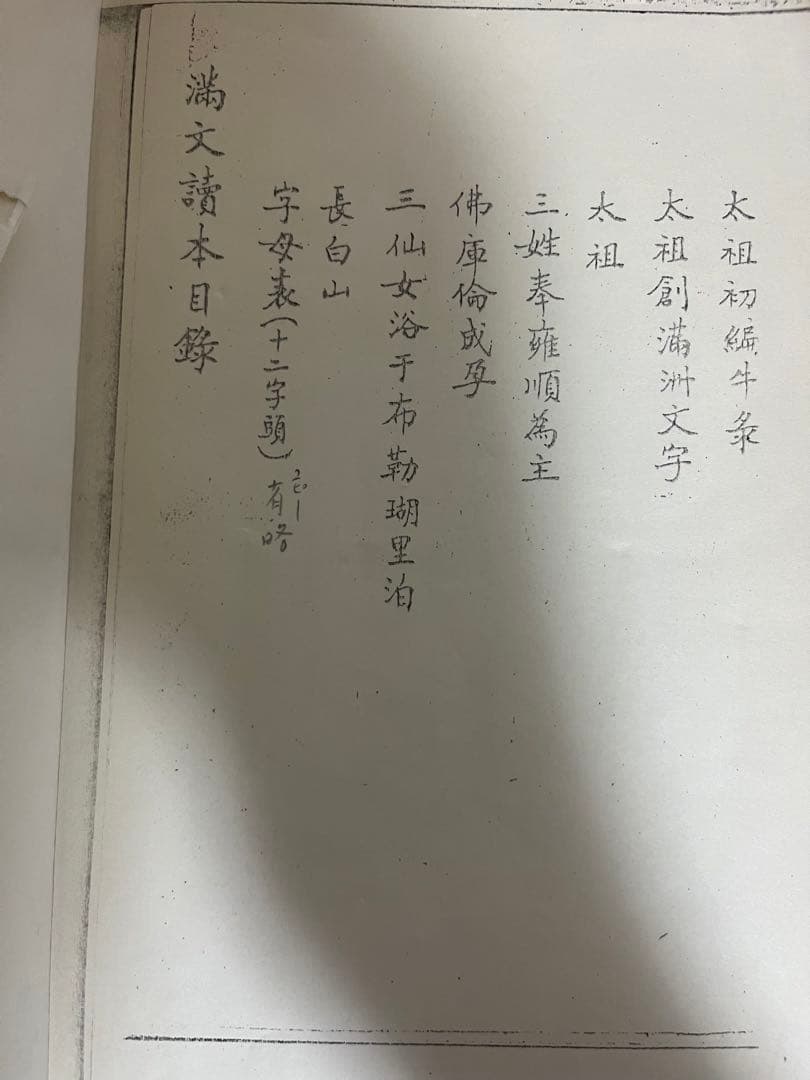 滿文讀本目錄
字母表(十二字頭) 有
長白山
三仙女浴于布勒瑚里泊
佛庫倫成孕
三姓奉雍順為主
太祖
太祖創滿洲文字
太祖初編牛彔